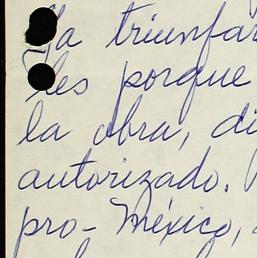 Ya triunfar
les porque
la obra, di
autorizado.
pro-México,